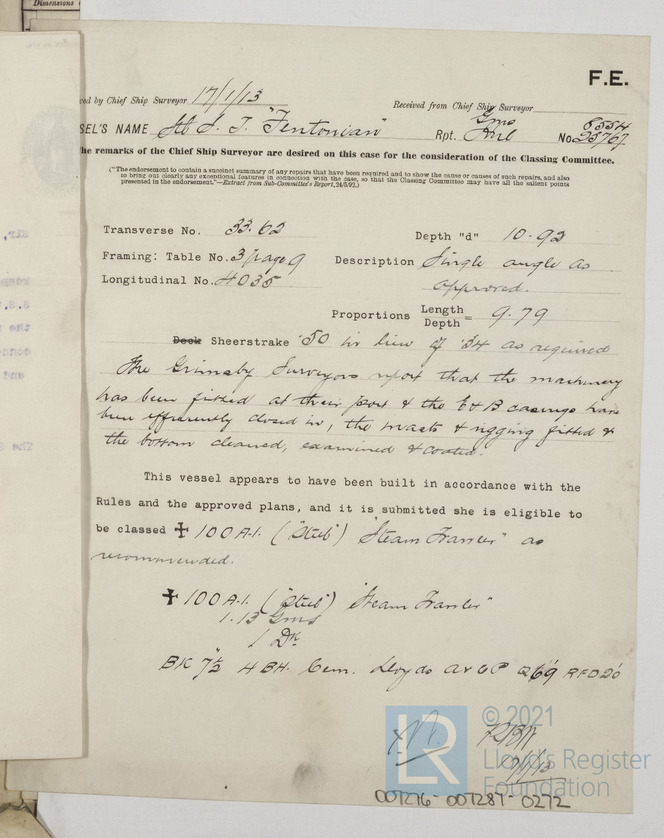 Dimensions
F.E.
ved by Chief Ship Surveyor 17/1/13 Received from Chief Ship Surveyor
SEL'S NAME St S. T. "Fentonian" Rpt. Gms Hul No. 8554 25767
he remarks of the Chief Ship Surveyor are desired on this case for the consideration of the Classing Committee.
("The endorsement to contain a succinct summary of any repairs that have been required and to show the cause or causes of such repairs, and also
to bring out clearly any exceptional features in connection with the case, so that the Classing Committee may have all the salient points
presented in the endorsement."—Extract from Sub-Committee's Report, 24/5/92.)
Transverse No. 33.62 Depth "d" 10.92
Framing: Table No. 3 page 9 Description Single angle as
Longitudinal No. 4035 approved.
Proportions Length/Depth = 9.79
Deck Sheerstrake .50 in lieu of .54 as required
The Grimsby Surveyors report that the machinery
has been fitted at their port & the E & B casings have
been efficiently closed in, the masts & rigging fitted &
the bottom cleaned, examined & coated.
This vessel appears to have been built in accordance with the
Rules and the approved plans, and it is submitted she is eligible to
be classed ✠ 100A.1. ("Steel") "Steam Trawler" as
recommended.
✠ 100A.1. ("Steel") "Steam Trawler"
1.13 Gms
1 Dk
BK 7½ 4 BH. Cem. Lloyds A & C P Q 69 RFD 20
© 2021
LR
Lloyd's Register
Foundation
007276-007287-0272